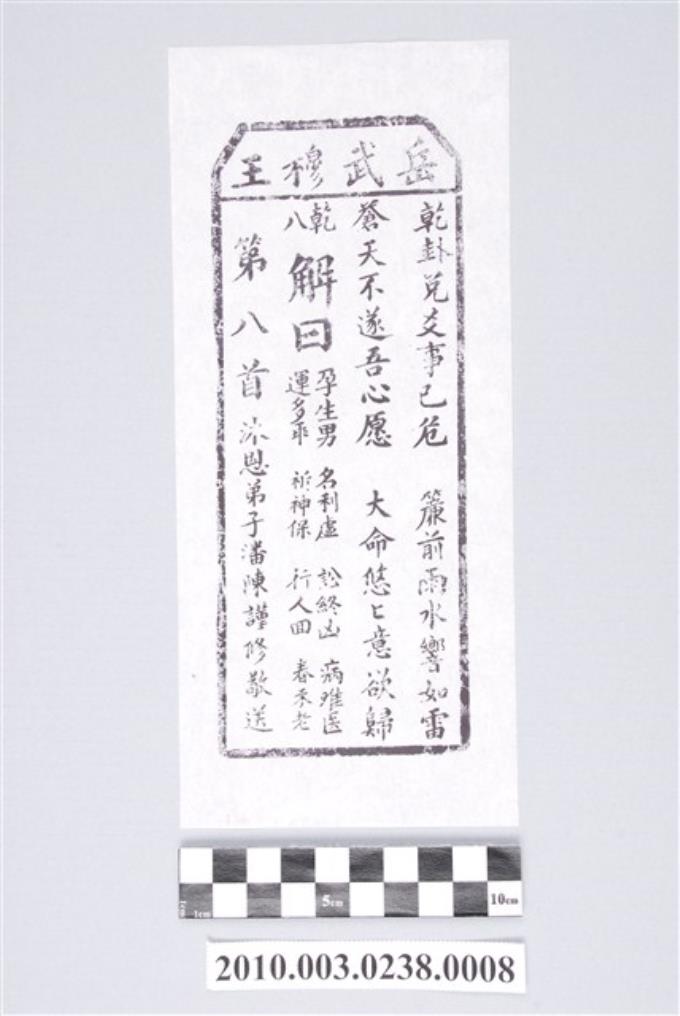 岳武穆王
乾卦兌爻事已危 簷前雨水響如雷
蒼天不遂吾心愿 大命悠〻意欲歸
乾八
解曰
孕生男 名利虛 訟終凶 病难医
運多乖 祈神保 行人回 春禾老
第八首 沐恩弟子潘陳謹修敬送
1cm 5cm 10cm
2010.003.0238.0008